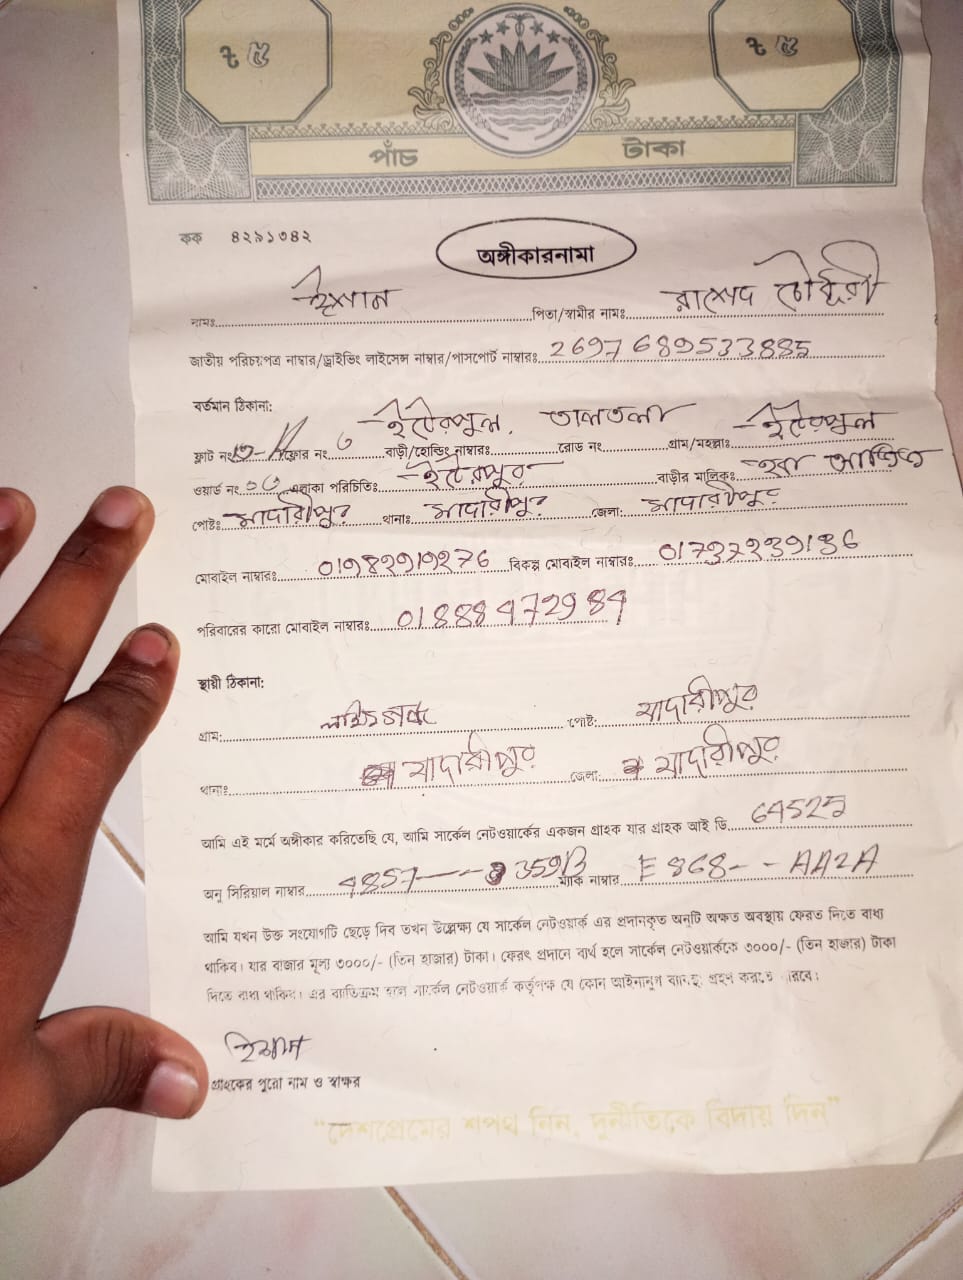 ৳ ৫ ৳ ৫
পাঁচ টাকা
কক ৪২৯১৩৪২
অঙ্গীকারনামা
নামঃ ইশান পিতা/স্বামীর নামঃ রাশেদ চৌধুরী
জাতীয় পরিচয়পত্র নাম্বার/ড্রাইভিং লাইসেন্স নাম্বার/পাসপোর্ট নাম্বারঃ 2697689533885
বর্তমান ঠিকানা:
ইটেরপুল, তালতলা ইটেরপুল
ফ্লাট নং ফ্লোর নং বাড়ী/হোল্ডিং নাম্বারঃ রোড নং গ্রাম/মহল্লাঃ
ওয়ার্ড নং এলাকা পরিচিতিঃ ইটেরপুর বাড়ীর মালিকঃ
পোষ্টঃ মাদারীপুর থানাঃ মাদারীপুর জেলা: মাদারীপুর
মোবাইল নাম্বারঃ বিকল্প মোবাইল নাম্বারঃ
পরিবারের কারো মোবাইল নাম্বারঃ
স্থায়ী ঠিকানা:
গ্রাম: পোষ্ট: মাদারীপুর
থানাঃ মাদারীপুর জেলা: মাদারীপুর
আমি এই মর্মে অঙ্গীকার করিতেছি যে, আমি সার্কেল নেটওয়ার্কের একজন গ্রাহক যার গ্রাহক আই ডি 64525
অনু সিরিয়াল নাম্বার ম্যাক নাম্বার E868--AA2A
আমি যখন উক্ত সংযোগটি ছেড়ে দিব তখন উল্লেক্ষ্য যে সার্কেল নেটওয়ার্ক এর প্রদানকৃত অনুটি অক্ষত অবস্থায় ফেরত দিতে বাধ্য
থাকিব। যার বাজার মূল্য ৩০০০/- (তিন হাজার) টাকা। ফেরৎ প্রদানে ব্যর্থ হলে সার্কেল নেটওয়ার্ককে ৩০০০/- (তিন হাজার) টাকা
দিতে বাধ্য থাকিব। এর ব্যতিক্রম হলে সার্কেল নেটওয়ার্ক কর্তৃপক্ষ যে কোন আইনানুগ করতে পারবে।
ইশান
গ্রাহকের পুরো নাম ও স্বাক্ষর
“দেশপ্রেমের শপথ নিন, দুর্নীতিকে বিদায় দিন”